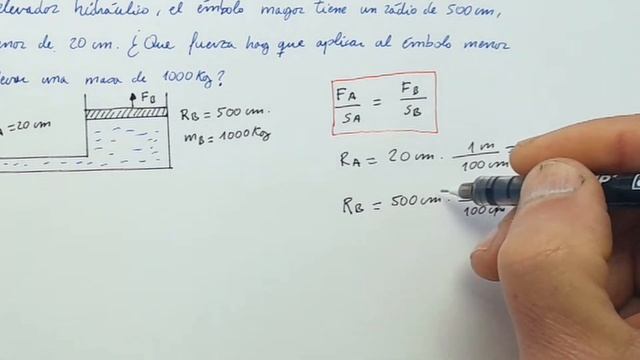 elevador hidráulico, el émbolo mayor tiene un radio de 500 cm,
de 20 cm. ¿Que fuerza hay que aplicar al émbolo menor
una masa de 1000 Kg?
FB
RB = 500 cm.
= 20 cm
mB = 1000 Kg
FA / SA = FB / SB
RA = 20 cm · 1 m / 100 cm =
RB = 500 cm · / 100 cm